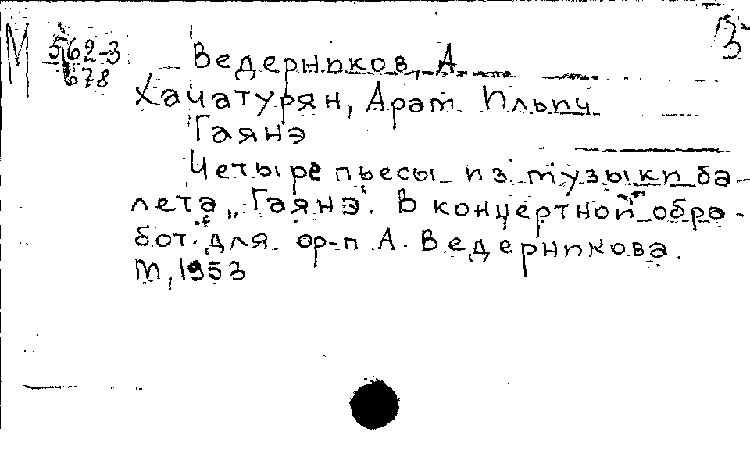 М 562-3
678
З
Ведерников, А.
Хачатурян, Арам Ильич
Гаянэ
Четыре пьесы из музыки ба-
лета „Гаянэ". В концертной обра-
бот. для ор-п А. Ведерникова.
М, 1953